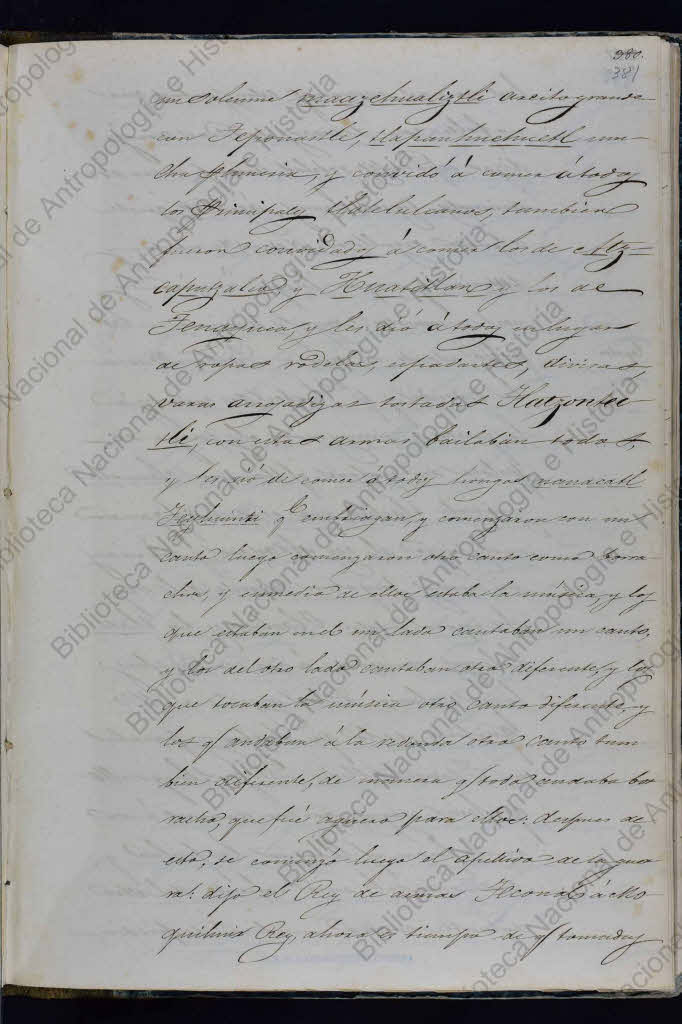 380.
381
un solemne maazehualiztli areito grande
con Teponastli, tlapanhuehuetl mu-
cha plumeria, y convidó á comer á todos
los Principales tlatelulcanos, tambien
fueron convidados á comer los de Atz=
caputzalco y Huatitlan y los de
Tenayuca y les dió á todos en lugar
de ropas rodelas, espadartes, divisas
varas arrojadizas tostadas Tlatzontec-
tli, con estas armas bailaban todos,
y les dió de comer á todos hongos nanacatl
q.e embriagan, y comenzaron con un
canto luego comenzaron otro canto como borra
chos, y enmedio de ellos estaba la música, y los
que estaban in el un lado cantaban un canto,
y los del otro lado cantaban otro diferente, y los
que tocaban la música otro canto diferente, y
los q.e andaban á la redonda otro canto tam
bien diferente, de manera q.e todo andaba bo
racho, que fué aguero para ellos: despues de
esto, se comenzó luego el apetivo de la gue
ra: dijo el Rey de armas Teconal á Mo
quihuis Rey, ahora es tiempo de q.e tomados
Biblioteca Nacional de Antropología e Historia